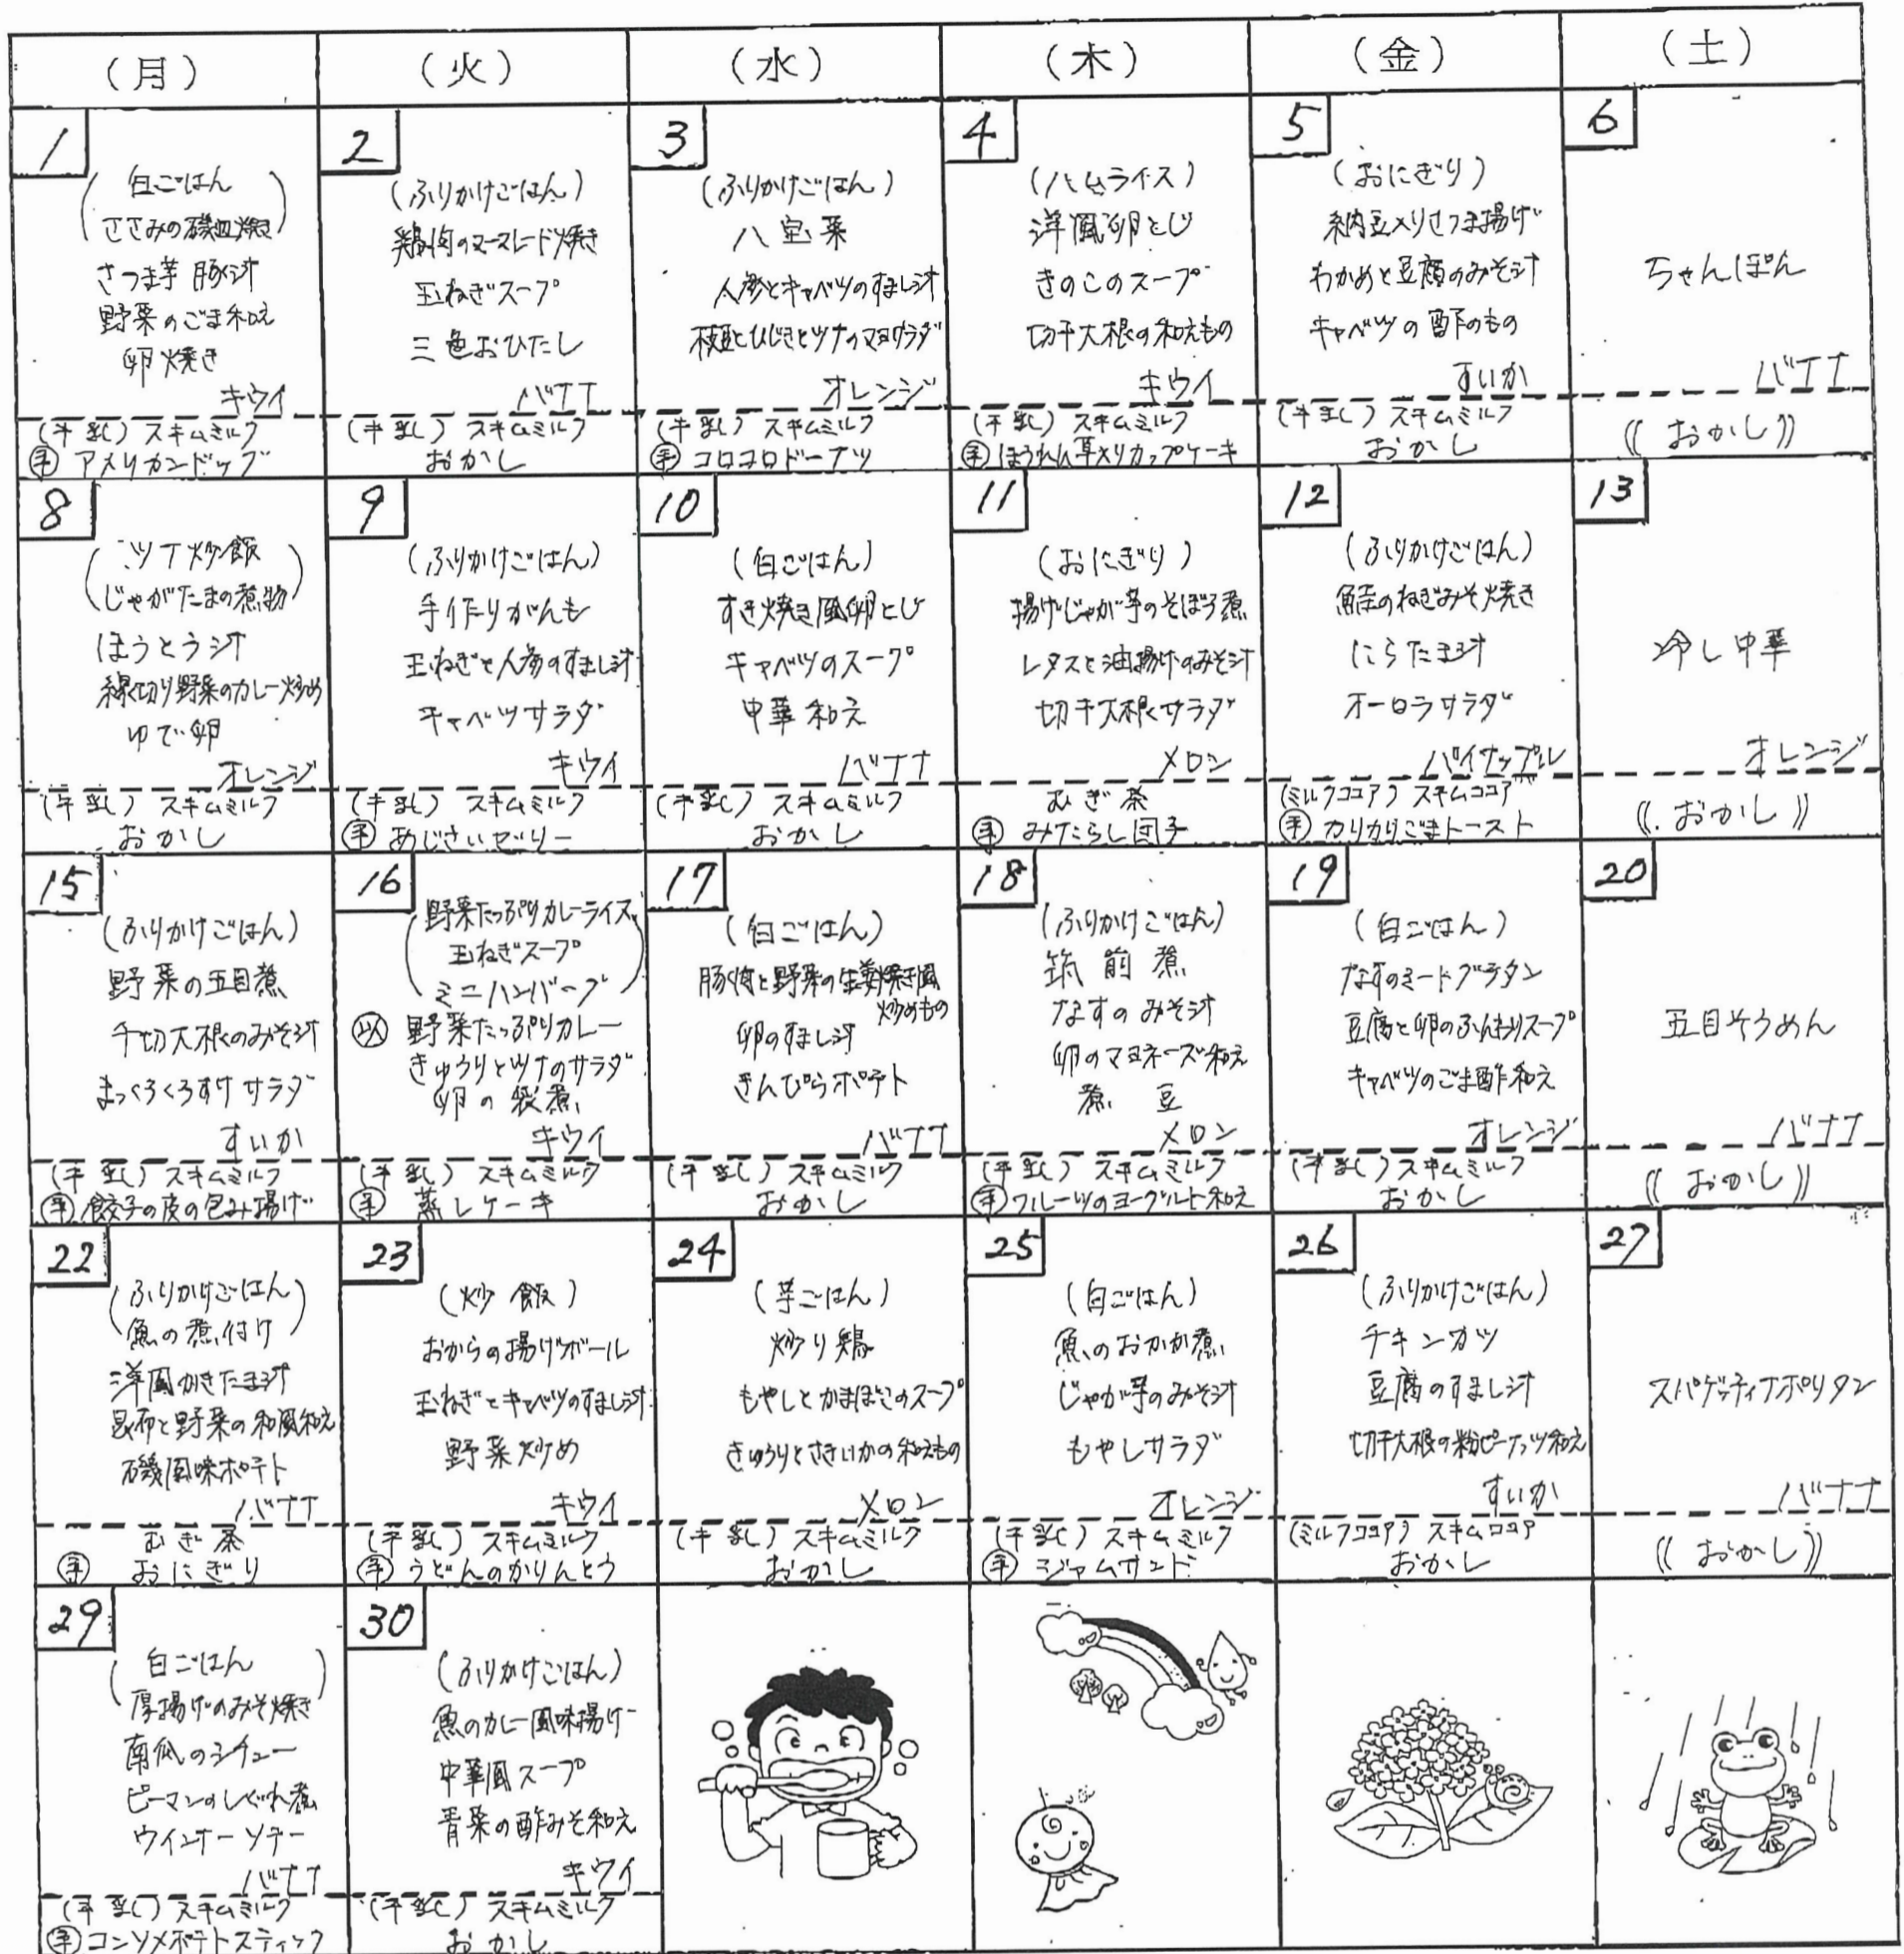 (月)
(火)
(水)
(木)
(金)
(土)
1
(白ごはん
ささみの磯皿焼き)
さつま芋豚汁
野菜のごま和え
卵焼き
キウイ
(牛乳) スキムミルク
㊥ アメリカンドッグ
2
(ふりかけごはん)
鶏肉のマーマレード焼き
玉ねぎスープ
三色おひたし
バナナ
(牛乳) スキムミルク
おかし
3
(ふりかけごはん)
八宝菜
人参とキャベツのすまし汁
枝豆とひじきとツナのマヨサラダ
オレンジ
(牛乳) スキムミルク
㊥ コロコロドーナツ
4
(ハムライス)
洋風卵とじ
きのこのスープ
切干大根の和えもの
キウイ
(牛乳) スキムミルク
㊥ ほうれん草入りカップケーキ
5
(おにぎり)
納豆入りさつま揚げ
わかめと豆腐のみそ汁
キャベツの酢のもの
すいか
(牛乳) スキムミルク
おかし
6
ちゃんぽん
バナナ
(( おかし ))
8
(ツナ炒飯
じゃがたまの煮物)
ほうとう汁
線切り野菜のカレー炒め
ゆで卵
オレンジ
(牛乳) スキムミルク
おかし
9
(ふりかけごはん)
手作りがんも
玉ねぎと人参のすまし汁
キャベツサラダ
キウイ
(牛乳) スキムミルク
手 あじさいゼリー
10
(白ごはん)
すき焼き風卵とじ
キャベツのスープ
中華和え
バナナ
(牛乳) スキムミルク
おかし
11
(おにぎり)
揚げじゃが芋のそぼろ煮
レタスと油揚げのみそ汁
切干大根サラダ
メロン
むぎ茶
手 みたらし団子
12
(ふりかけごはん)
鮭のねぎみそ焼き
にらたま汁
オーロラサラダ
パイナップル
(ミルクココア) スキムココア
手 カリカリごまトースト
13
冷し中華
オレンジ
(( おかし ))
15
(ふりかけごはん)
野菜の五目煮
千切大根のみそ汁
まっくろくろすけサラダ
すいか
(牛乳) スキムミルク
手 餃子の皮の包み揚げ
16
(野菜たっぷりカレーライス
玉ねぎスープ
ミニハンバーグ)
以 野菜たっぷりカレー
きゅうりとツナのサラダ
卵の袋煮
キウイ
(牛乳) スキムミルク
手 蒸しケーキ
17
(白ごはん)
豚肉と野菜の生姜焼き風
炒めもの
卵のすまし汁
きんぴらポテト
バナナ
(牛乳) スキムミルク
おかし
18
(ふりかけごはん)
筑前煮
なすのみそ汁
卵のマヨネーズ和え
煮豆
メロン
(牛乳) スキムミルク
手 フルーツのヨーグルト和え
19
(白ごはん)
なすのミートグラタン
豆腐と卵のふんわりスープ
キャベツのごま酢和え
オレンジ
(牛乳) スキムミルク
おかし
20
五目そうめん
バナナ
(( おかし ))
22
(ふりかけごはん
魚の煮付け)
洋風かきたま汁
昆布と野菜の和風和え
磯風味ポテト
バナナ
むぎ茶
手 おにぎり
23
(炒飯)
おからの揚げボール
玉ねぎとキャベツのすまし汁
野菜炒め
キウイ
(牛乳) スキムミルク
手 うどんのかりんとう
24
(芋ごはん)
炒り鶏
もやしとかまぼこのスープ
きゅうりとさきいかの和えもの
メロン
(牛乳) スキムミルク
おかし
25
(白ごはん)
魚のおかか煮
じゃが芋のみそ汁
もやしサラダ
オレンジ
(牛乳) スキムミルク
手 ジャムサンド
26
(ふりかけごはん)
チキンカツ
豆腐のすまし汁
切干大根の粉ピーナッツ和え
すいか
(ミルクココア) スキムココア
おかし
27
スパゲッティナポリタン
バナナ
(( おかし ))
29
(白ごはん
厚揚げのみそ焼き)
南瓜のシチュー
ピーマンのしぐれ煮
ウインナーソテー
バナナ
(牛乳) スキムミルク
手 コンソメポテトスティック
30
(ふりかけごはん)
魚のカレー風味揚げ
中華風スープ
青菜の酢みそ和え
キウイ
(牛乳) スキムミルク
おかし